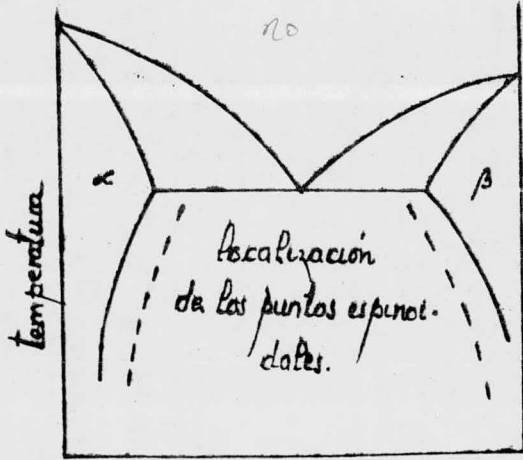 no
α
β
temperatura
localización
de los puntos espinoi-
dales.